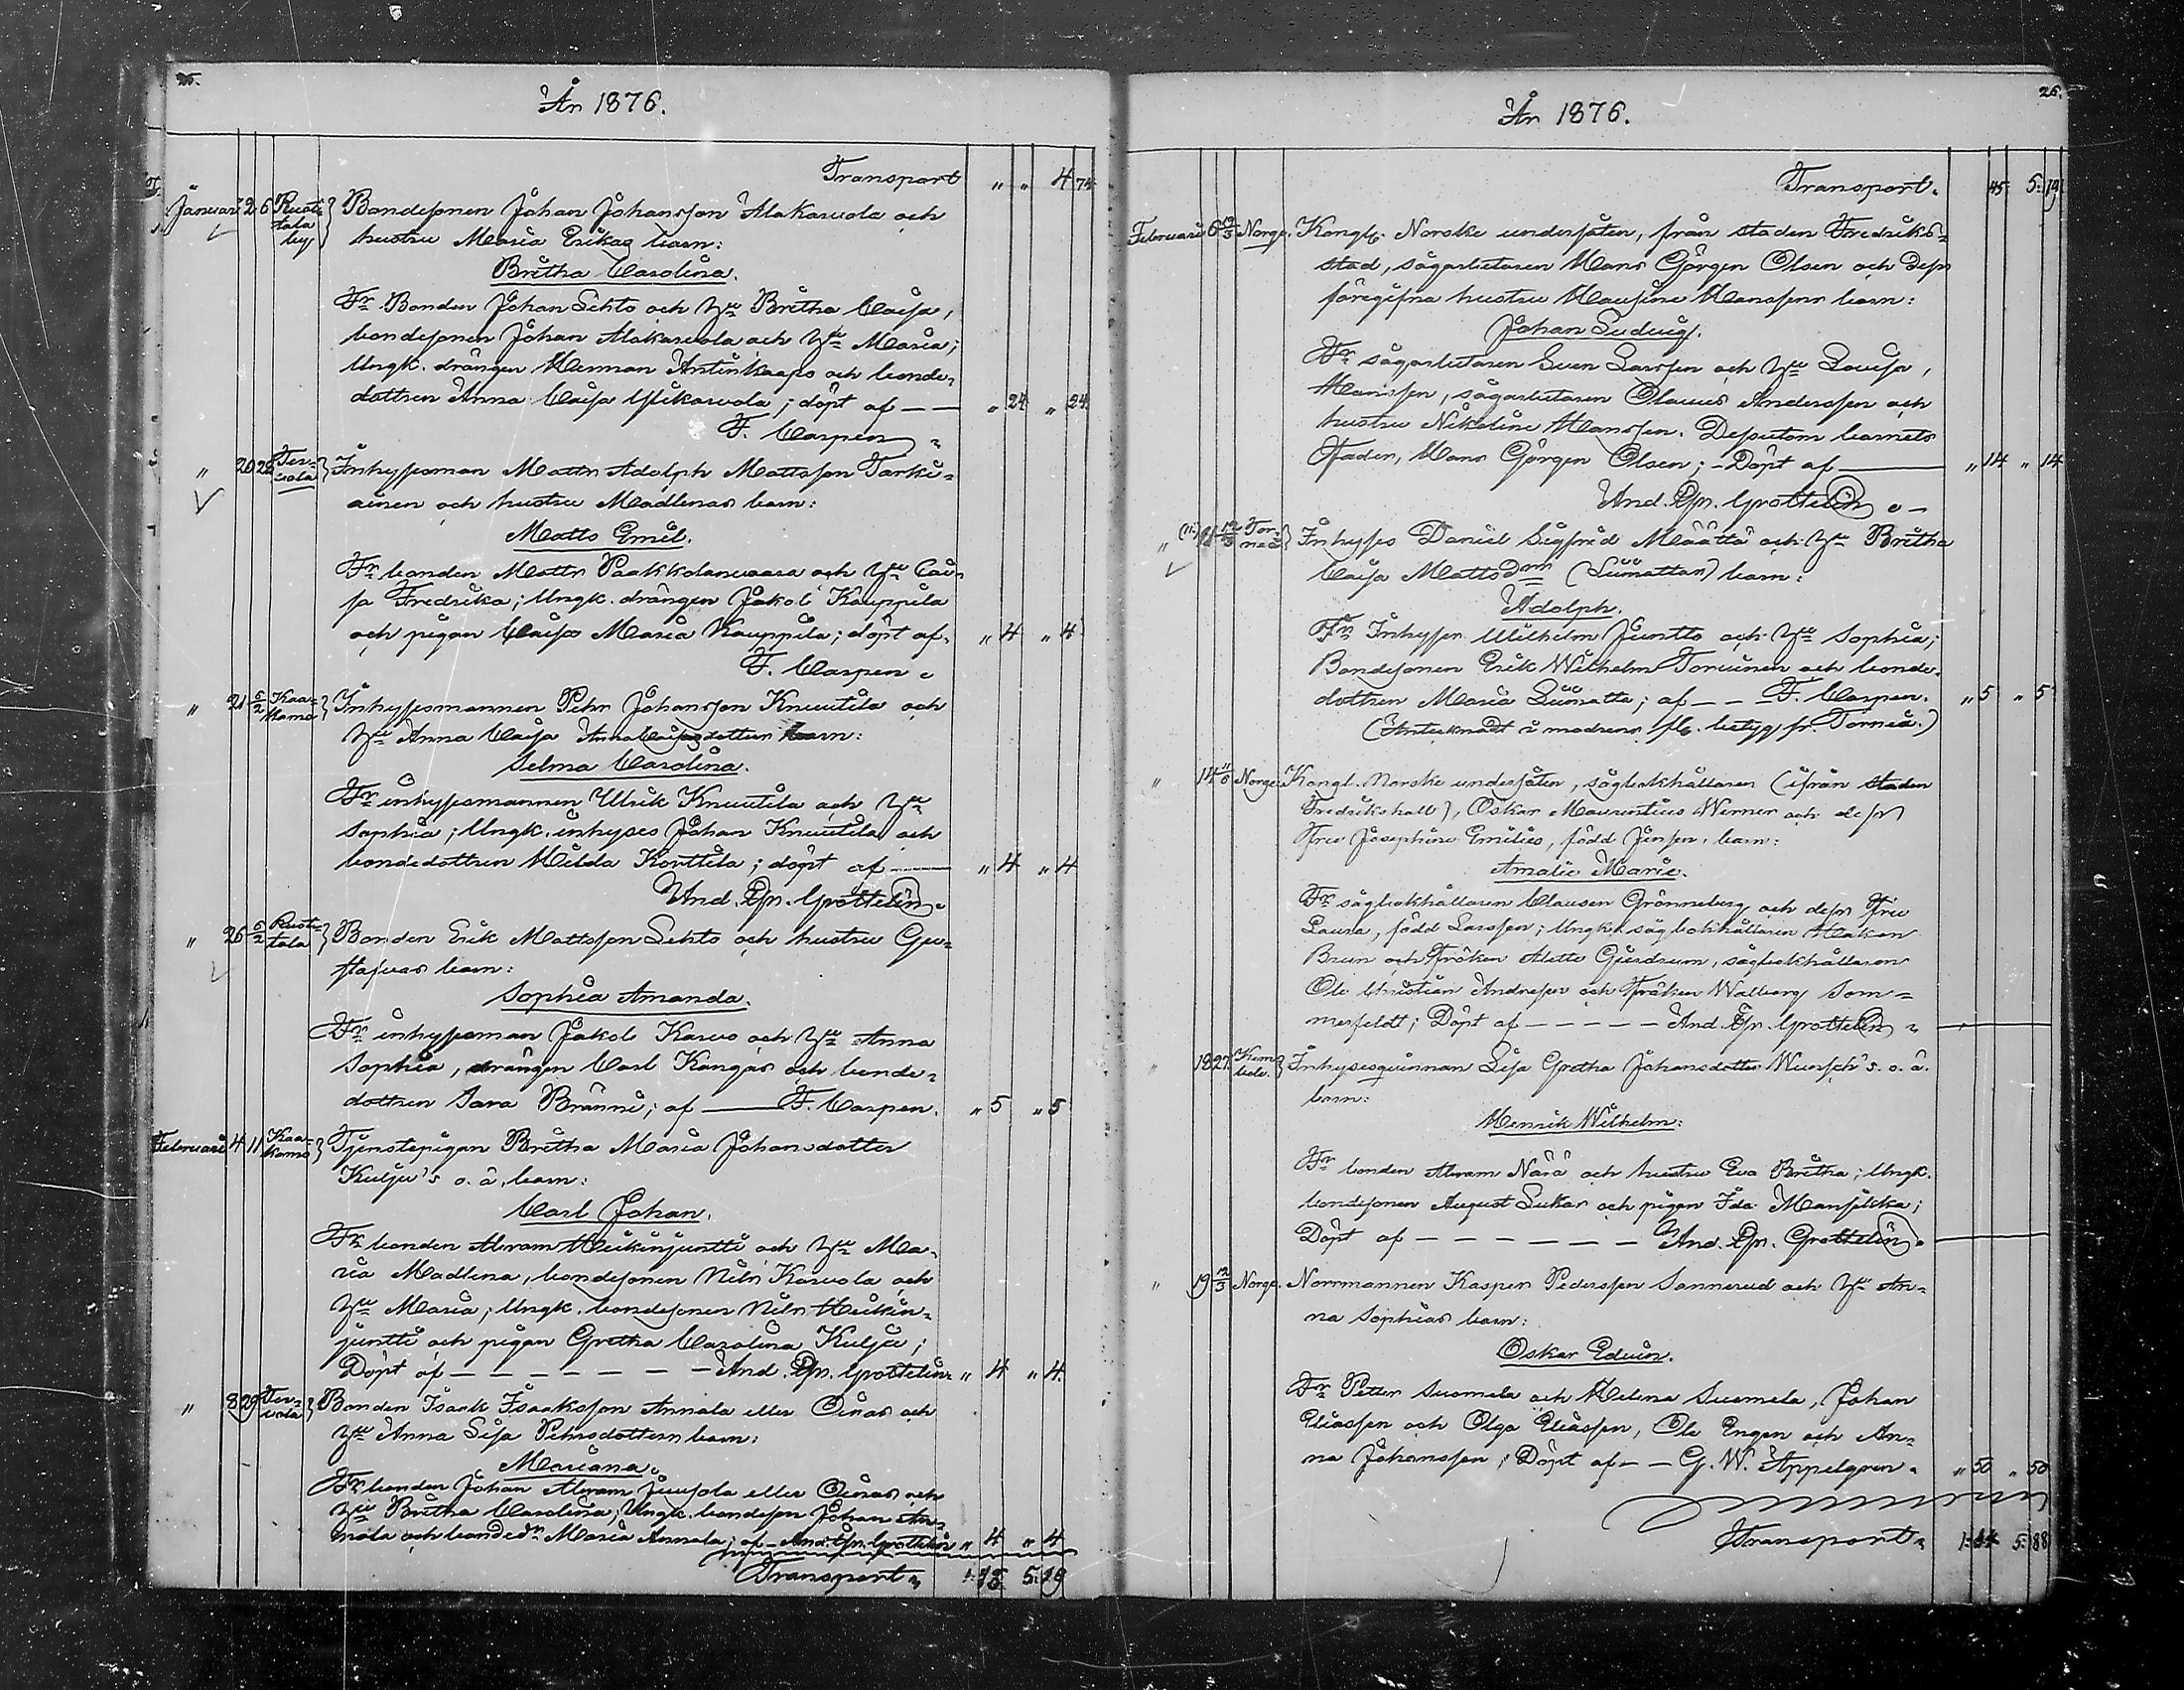 25.
År 1876.
Transport " " 4 74
Januari 2 6 Ruottala by Bondesonen Johan Johansson Alakarvola och
hustru Maria Erikas barn:
Britha Carolina.
Fr. Bonden Johan Lehto och Hu Britha Caisa,
bondesonen Johan Alakarvola och Hu Maria;
Ungk. drängen Herman Antinkaapo och bonde-
dottren Anna Caisa Ylikarvola; döpt af — — " 24 " 24
F. Carpen
" 20 22 Tervola Inhysesman Matts Adolph Mattsson Tarki-
ainen och hustru Madlenas barn:
Matts Emil.
Fr. bonden Matts Paakkolanvaara och Hu Cai-
sa Fredrika; Ungk. drängen Jakob Kauppila
och pigan Caisa Maria Kauppila; döpt af. " 4 " 4
F. Carpen
" 21 6/2 Kaakamo Inhysesmannen Pehr Johansson Knuutila och
Hu Anna Caisa Annacaisasdotters barn:
Selma Carolina.
Fr. inhysesmannen Ulrik Knuutila och Hu
Sophia; Ungk. inhyses Johan Knuutila och
bondedottren Hilda Konttila; döpt af — " 4 " 4
And. Joh. Grottelin
" 26 6/2 Ruottala Bonden Erik Mattsson Lehto och hustru Gu-
stafvas barn:
Sophia Amanda.
Fr. inhysesman Jakob Karvo och Hu Anna
Sophia, drängen Carl Kangas och bonde-
dottren Sara Bränni; af — F. Carpen. " 5 " 5
Februari 4 11 Kaakamo Tjenstepigan Britha Maria Johansdotter
Kulju's o. ä. barn:
Carl Johan.
Fr. bonden Abram Heikinjuntti och Hu Ma-
ria Madlena, bondesonen Nils Karvola och
Hu Maria; Ungk. bondesonen Nils Heikin-
juntti och pigan Gretha Carolina Kulju;
Döpt af — — — — — — And. Joh. Grottelin " 4 " 4.
" 8 29 Tervola Bonden Isaak Isaaksson Annala eller Oinas och
Hu Anna Lisa Pehrsdotters barn:
Mariana.
Fr. bonden Johan Abram Juusola eller Oinas och
Hu Britha Carolina; Ungk. bondeson Johan An-
nala och bonded:r Maria Annala; af — And. Joh. Grottelin " 4 " 4
Transport 5. 19
26.
År 1876.
Transport. 45 5. 19
Februari 6 12/3 Norge. Kongl. Norske undersåten, från staden Fredriks-
stad, sågarbetaren Hans Görgen Olsen och dess
föregifna hustru Hansine Hanssens barn:
Johan Ludvig.
Fr. sågarbetaren Sven Larssen och Hu Lovisa,
Hanssen, sågarbetaren Olaves Anderssen och
hustru Nikoline Hanssen. Dessutom barnets
Fader, Hans Görgen Olsen; — Döpt af — " 14 " 14
And. Joh. Grottelin
" 11 12/3 Torneå Inhyses Daniel Sigfrid Määttä och Hu Britha
Caisa Mattsdrs (Liimattas) barn:
Adolph.
Fr. Inhyses Wilhelm Juntto och Hu Sophia;
Bondesonen Erik Wilhelm Torvinen och bonde-
dottren Maria Liimatta; af — — F. Carpen. " 5 " 5
(Antecknadt i modrens fl. betyg fr. Torneå.)
" 14 Norge. Kongl. Norske undersåten, sågbokhållaren (ifrån staden
Fredrikshall), Oskar Maurentius Werner och dess
Fru Josephine Emilies, född Jensen, barn:
Amalie Marie.
Fr. sågbokhållaren Clausen Grönneberg och dess Fru
Laura, född Larssen; Ungk. sågbokhållaren Hakon
Brun och Fröken Alette Gjerdrum, sågbokhållaren
Ole Christian Andresen och Fröken Walborg Som-
merfeldt; Döpt af — — — — — And. Joh. Grottelin
" 18 27 Inhysesqvinnan Lisa Gretha Johansdotter Wuersch's o. ä.
barn:
Henrik Wilhelm:
Fr. bonden Abram Närä och hustru Eva Britha; Ungk.
bondesonen August Lukas och pigan Ida Mansikka;
Döpt af — — — — — — And. Joh. Grottelin
" 19 12/3 Norge. Norrmannen Kasper Pederssen Sannerud och Hu An-
na Sophias barn:
Oskar Edvin.
Fr. Petter Suomela och Helena Suomela, Johan
Eliassen och Olga Eliassen, Ole Engen och An-
na Johanssen; Döpt af — — G. W. Appelgren. " 50 " 50
Transport 1:14 5:88